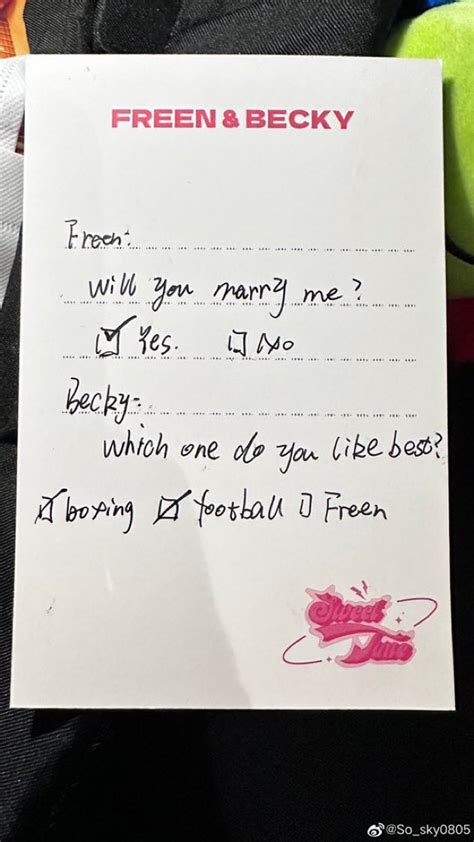 FREEN & BECKY
Freen:
Will you marry me?
☑ Yes. ☐ No
Becky:
Which one do you like best?
☑ boxing ☑ football ☐ Freen
Sweet
Mate
@So_sky0805